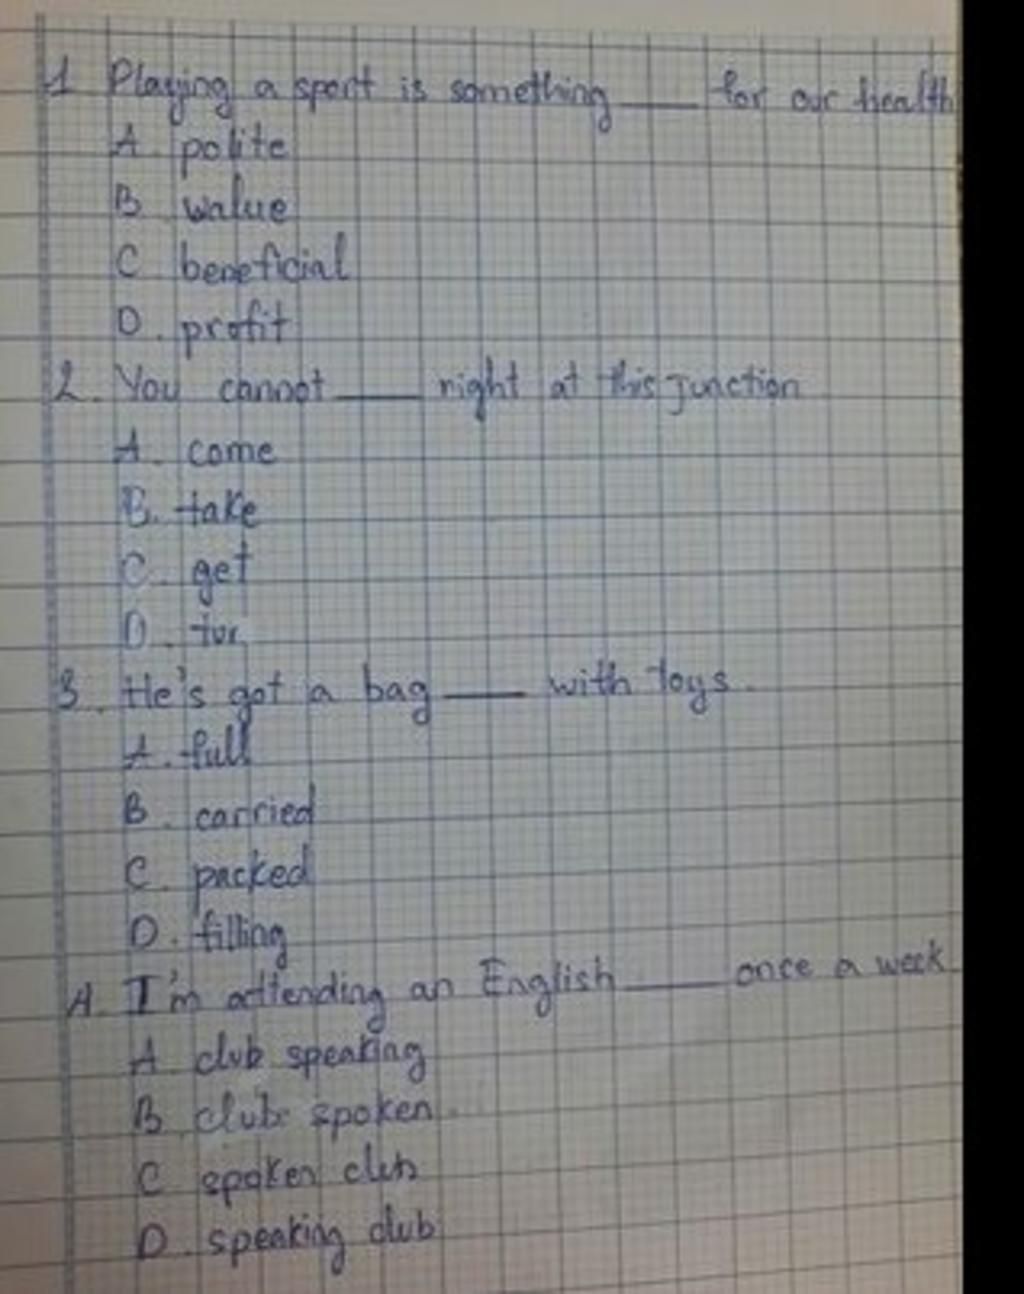 1 Playing a sport is something ___ for our health
A polite
B value
C beneficial
D. profit
2. You cannot ___ right at this junction
A. come
B. take
C. get
D. tur
3. He's got a bag ___ with toys.
A. full
B. carried
C. packed
D. filling
4. I'm attending an English ___ once a week
A club speaking
B club spoken
C spoken club
D. speaking club